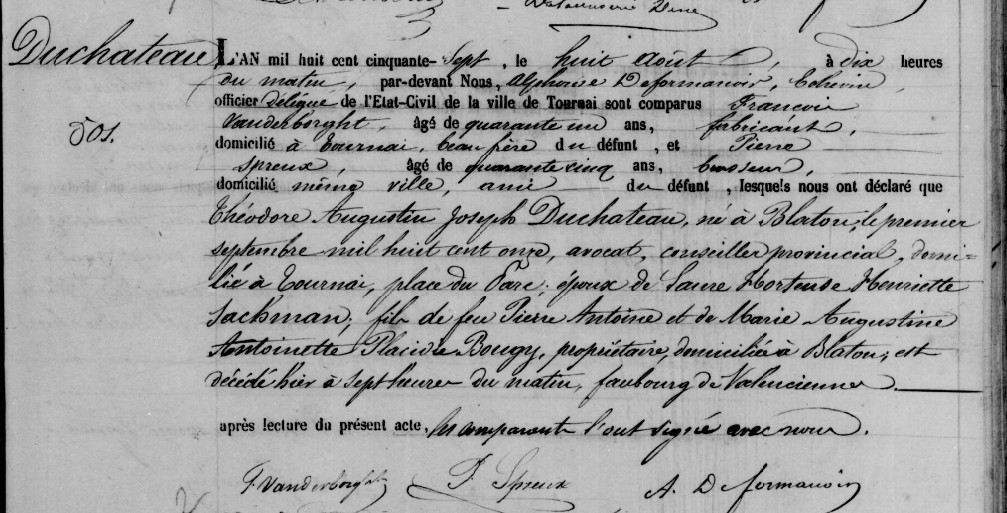 Delannoerie Dene
Duchateau
501.
L'AN mil huit cent cinquante-Sept, le huit Août, à dix heures
du matin, par-devant Nous, Alphonse Deformanoir, Echevin
officier délégué de l'Etat-Civil de la ville de Tournai sont comparus François
Vanderborght, âgé de quarante un ans, fabricant,
domicilié à Tournai, beau frère du défunt, et Pierre
Spreux, âgé de quarante cinq ans, brasseur,
domicilié même ville, ami du défunt, lesquels nous ont déclaré que
Théodore Augustin Joseph Duchateau, né à Blaton, le premier
septembre mil huit cent onze, avocat, conseiller provincial, domi-
lié à Tournai, place du Parc, époux de Laure Hortense Henriette
Sackman, fils de feu Pierre Antoine et de Marie Augustine
Antoinette Placide Bougy, propriétaire, domiciliée à Blaton, est
décédé hier à sept heures du matin, faubourg de Valenciennes.
après lecture du présent acte, les comparants l'ont signé avec nous.
F. Vanderborght P. Spreux A. Deformanoir